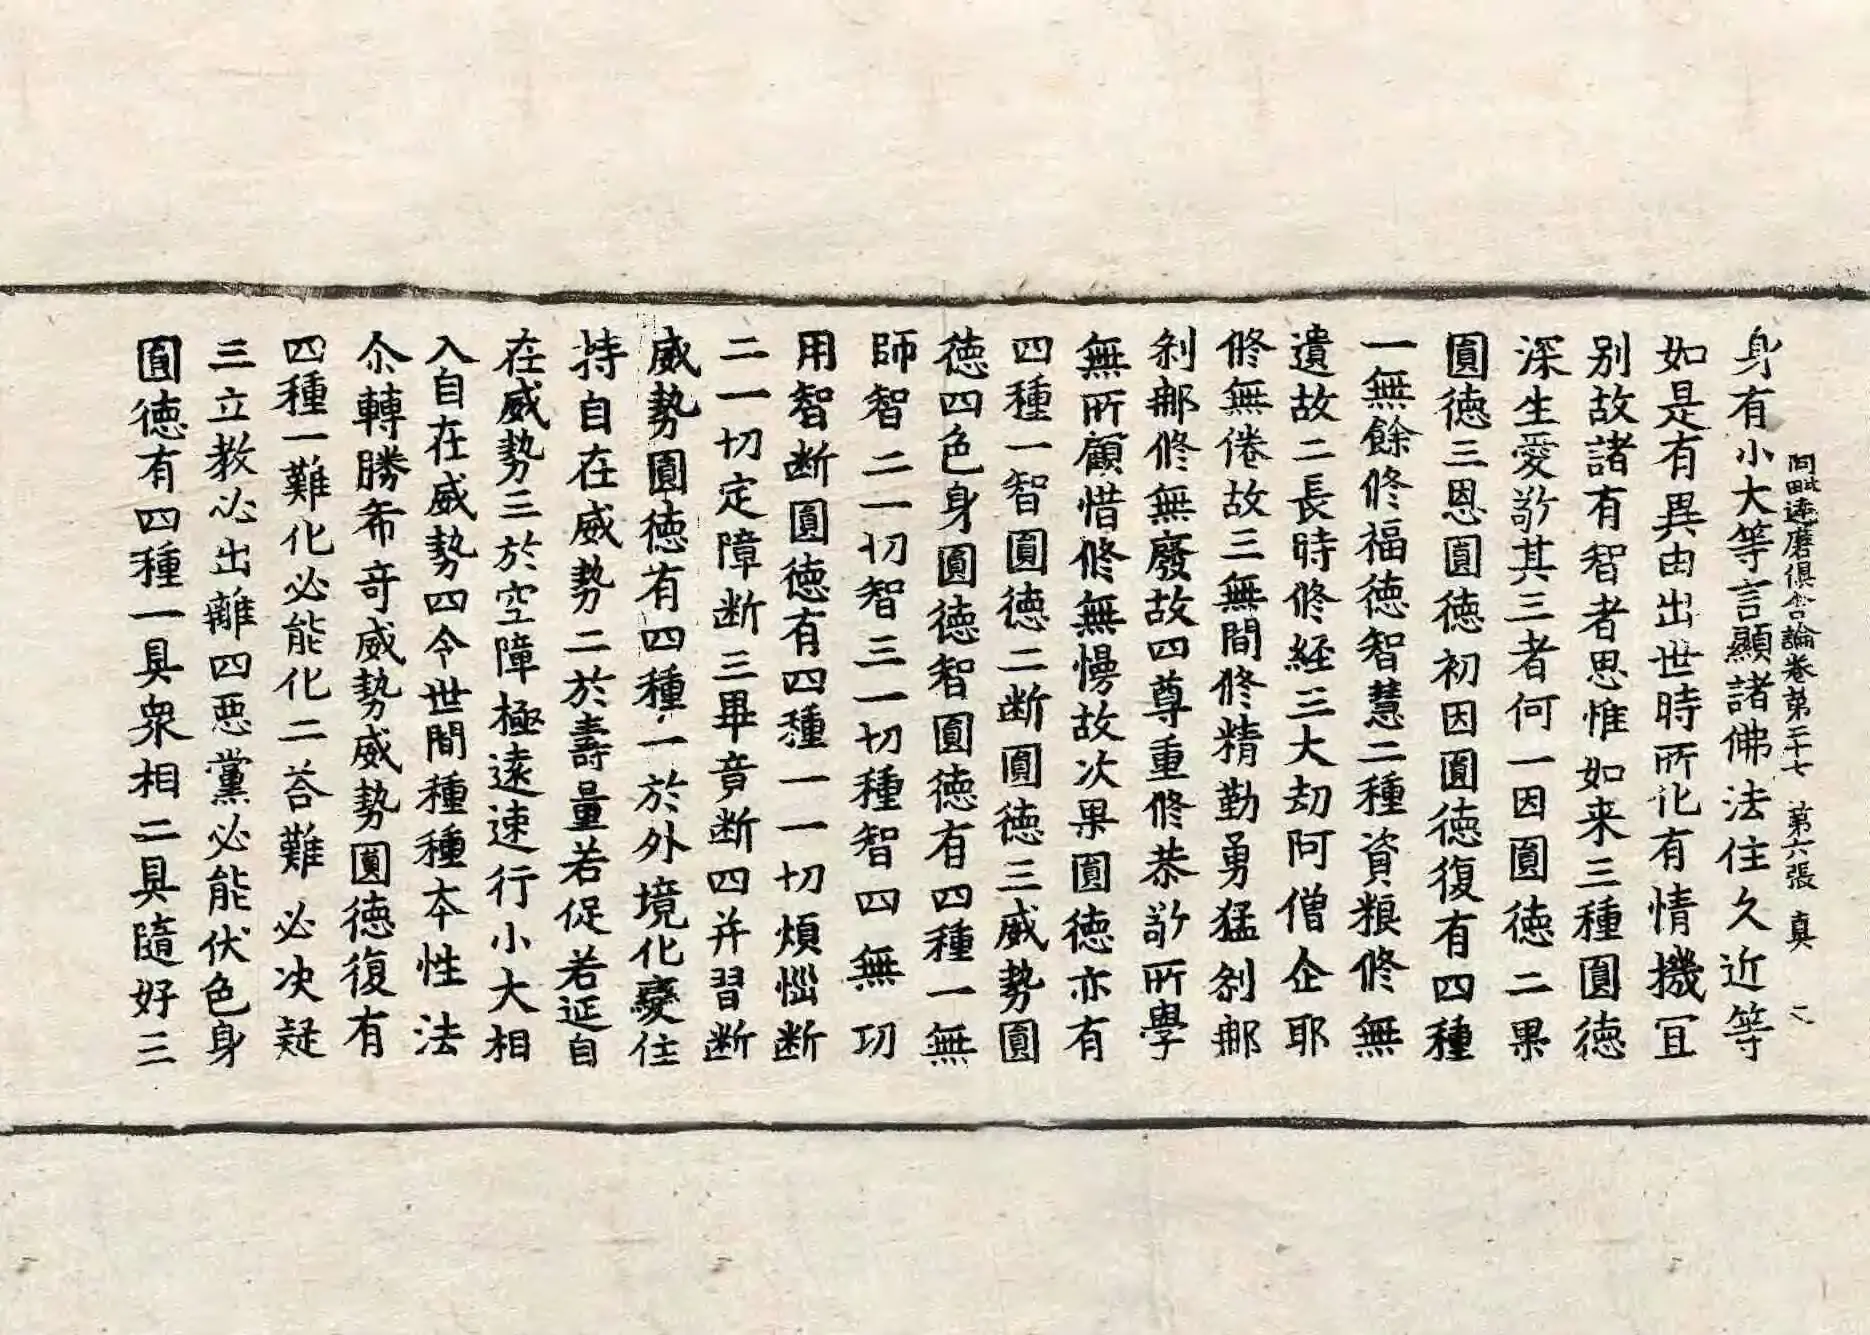 身有小大等言顯諸佛法住久近等
阿毗達磨俱舍論卷第二十七 第六張 真
如是有異由出世時所化有情機冝
别故諸有智者思惟如来三種圓德
深生愛敬其三者何一因圓德二果
圓德三恩圓德初因圓德復有四種
一無餘修福德智慧二種資粮修無
遺故二長時修經三大劫阿僧企耶
修無倦故三無間修精勤勇猛刹那
刹那修無廢故四尊重修恭敬所學
無所顧惜修無慢故次果圓德亦有
四種一智圓德二断圓德三威勢圓
德四色身圓德智圓德有四種一無
師智二一切智三一切種智四無功
用智断圓德有四種一一切煩惱断
二一切定障断三畢竟断四并習断
威勢圓德有四種一於外境化變住
持自在威勢二於壽量若促若延自
在威勢三於空障極遠速行小大相
入自在威勢四令世間種種本性法
尒轉勝希奇威勢威勢圓德復有
四種一難化必能化二荅難必决疑
三立教必出離四惡黨必能伏色身
圓德有四種一具衆相二具隨好三